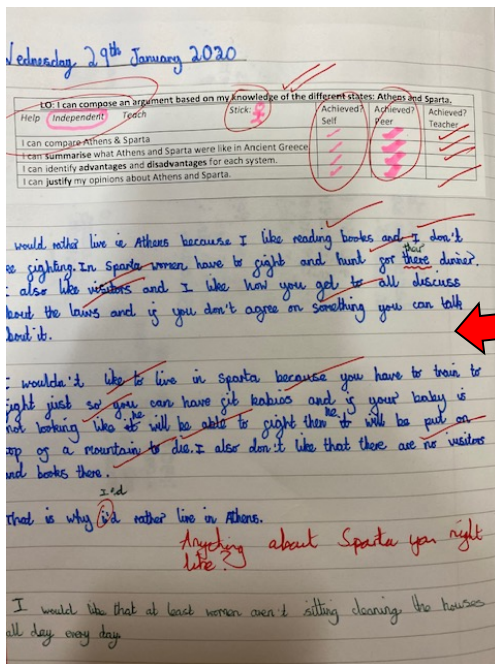 Wednesday 29th January 2020
LO: I can compose an argument based on my knowledge of the different states: Athens and Sparta.
Help Independent Teach Stick: Achieved? Self Achieved? Peer Achieved? Teacher
I can compare Athens & Sparta
I can summarise what Athens and Sparta were like in Ancient Greece
I can identify advantages and disadvantages for each system.
I can justify my opinions about Athens and Sparta.
would rather live in Athens because I like reading books and I don't
fighting. In Sparta women have to fight and hunt for there dinner.
their
I also like visitors and I like how you get to all discuss
bout the laws and if you don't agree on something you can talk
bout it.
I wouldn't like to live in Sparta because you have to train to
ight just so you can have fit babies and if your baby is
not looking like it will be able to fight then it will be put on
he he
op of a mountain to die. I also don't like that there are no visitors
and books there.
I'd
That is why i'd rather live in Athens.
Anything about Sparta you might
like?
I would like that at least women aren't sitting cleaning the houses
all day every day.